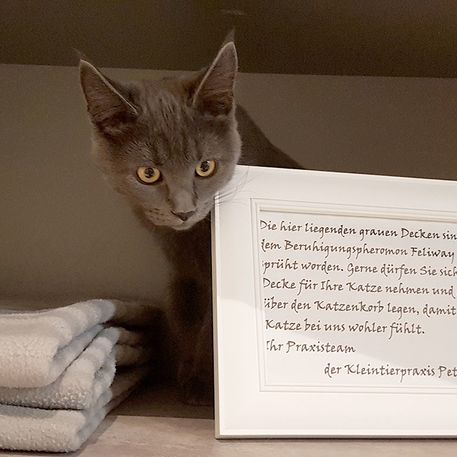 Die hier liegenden grauen Decken sin
dem Beruhigungspheromon Feliway
prüht worden. Gerne dürfen Sie sich
Decke für Ihre Katze nehmen und
über den Katzenkorb legen, damit
Katze bei uns wohler fühlt.
Ihr Praxisteam
der Kleintierpraxis Pet